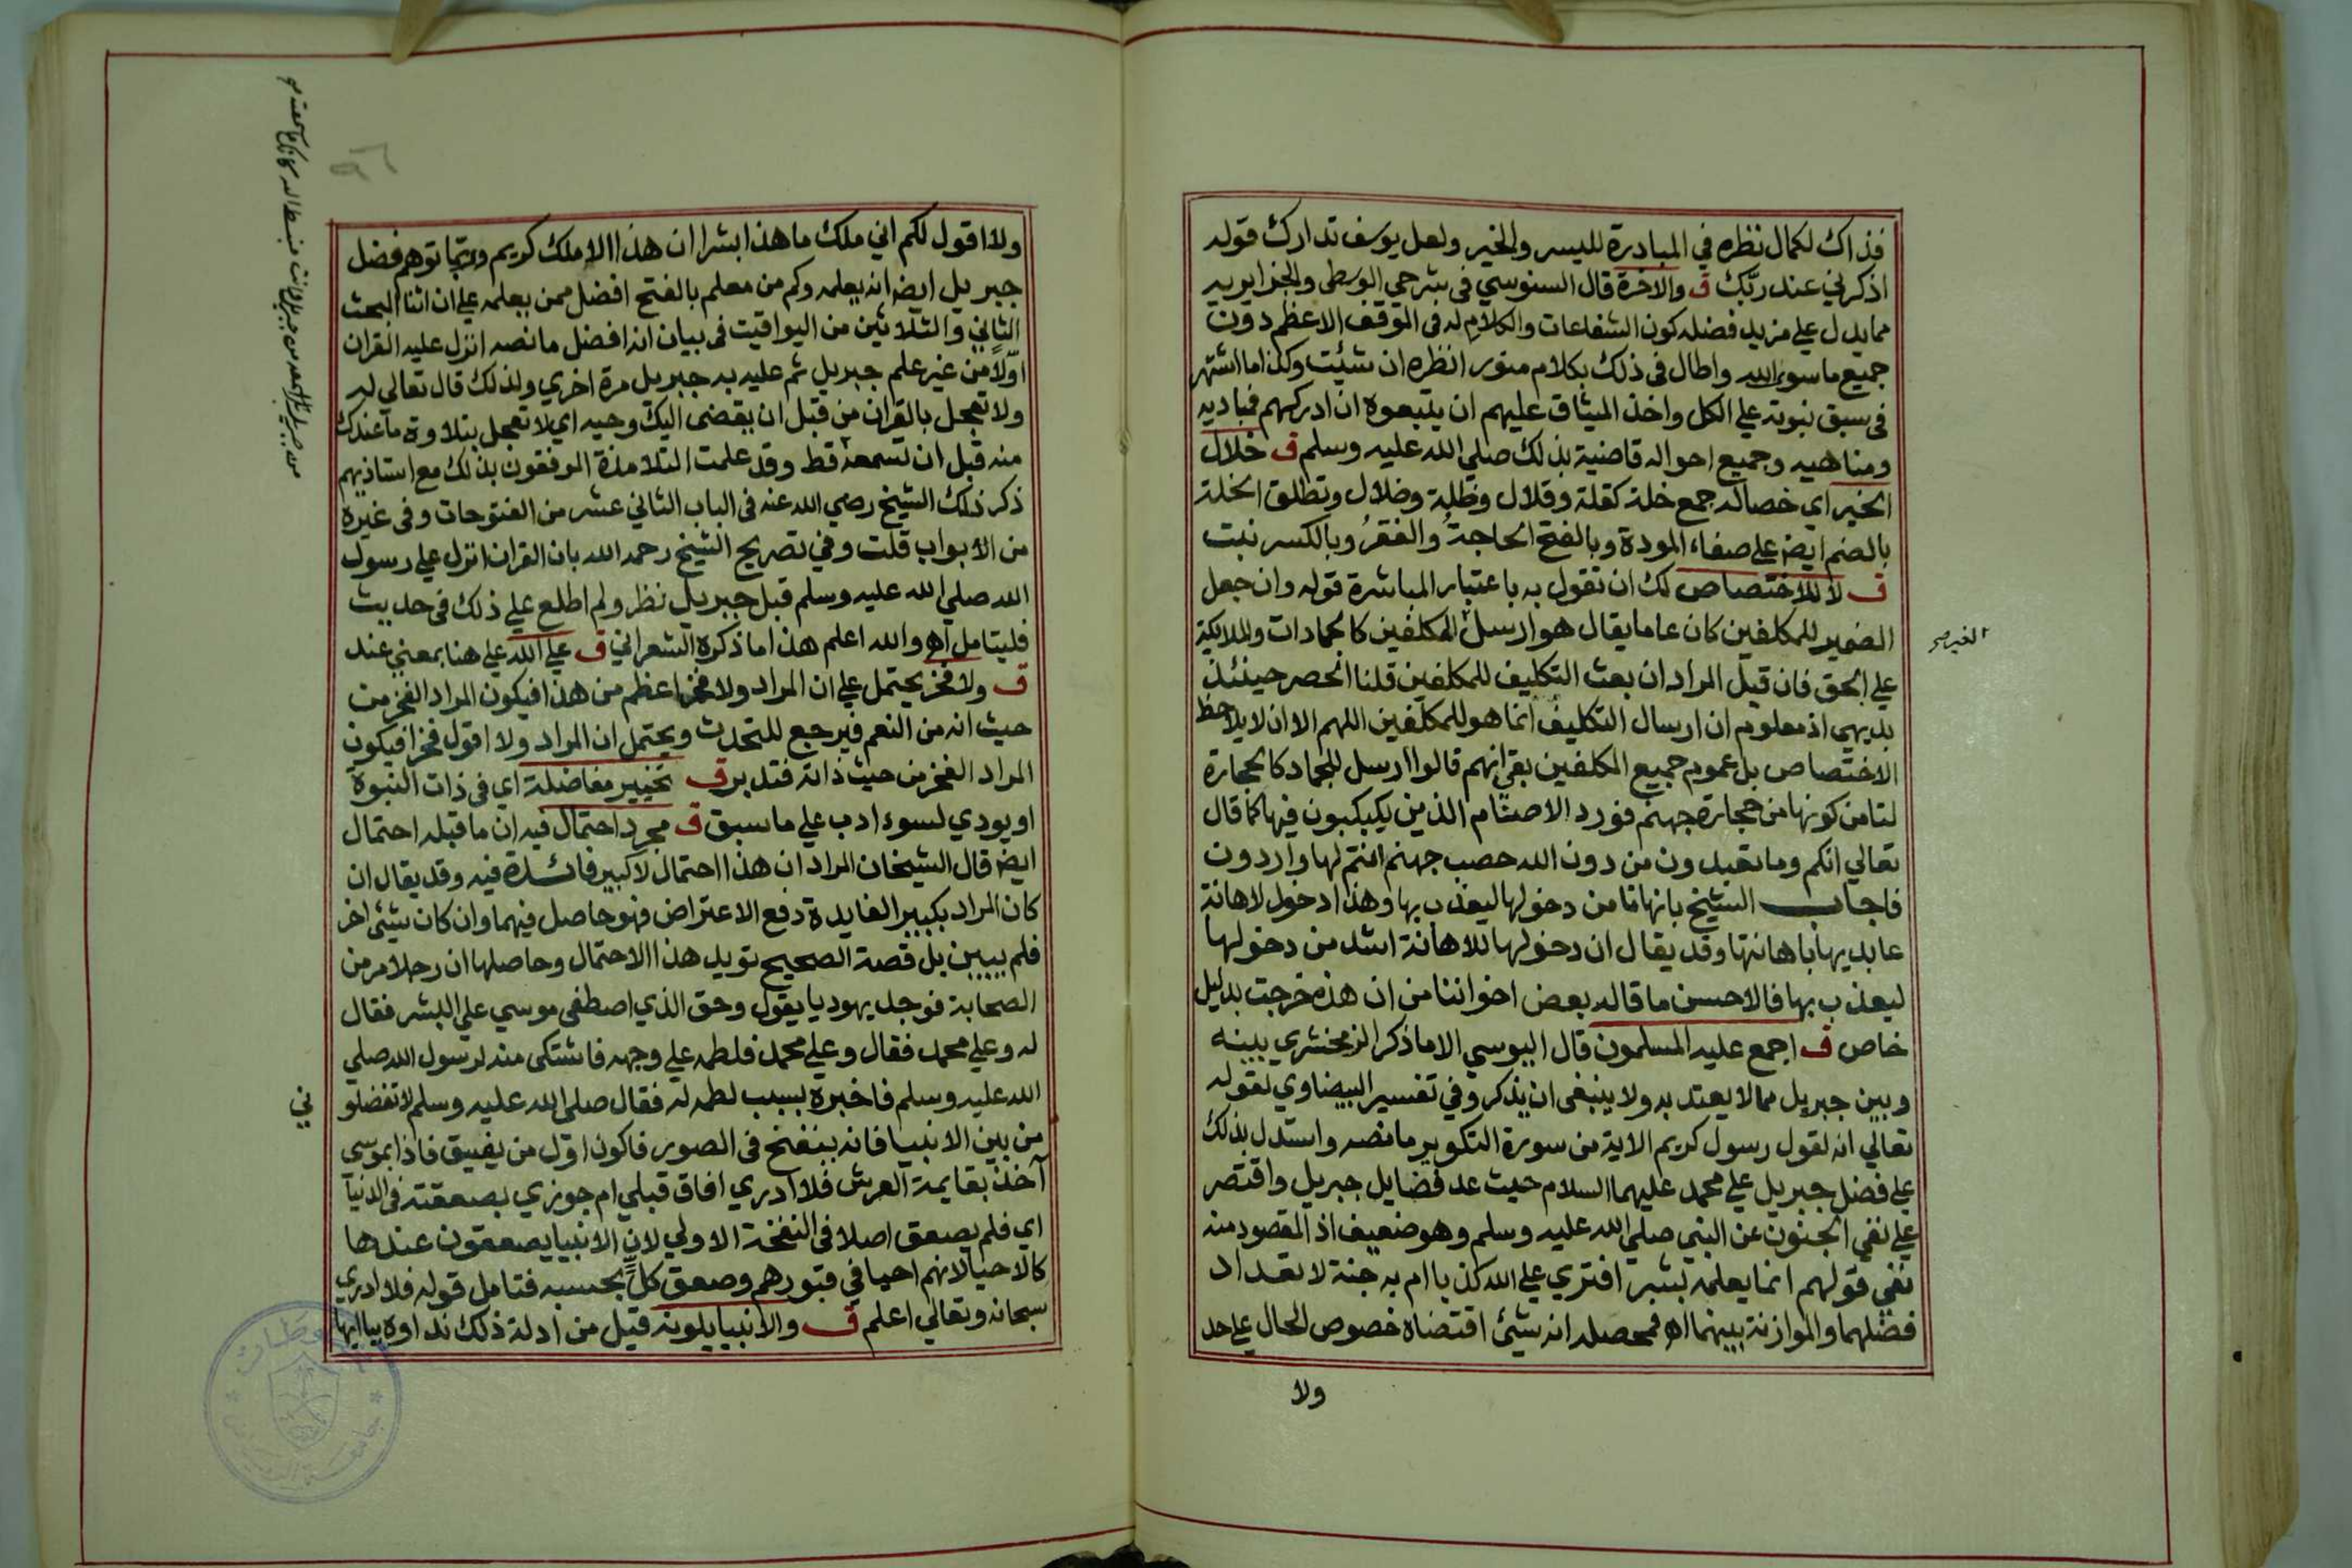 فذاك لكمال نظره في المبادرة لليسر والخير ولعل يوسف تدارك قوله
اذكرني عند ربّك ق والاخرة قال السنوسي فى شرحي الوسطى والجزايريد
مما يدل علي مزيد فضله كون الشفاعات والكلام له فى الموقف الاعظم دون
جميع ما سوى الله واطال فى ذلك بكلام منور انظره ان شئت وكذا ما اشتهر
فى سبق نبوته علي الكل واخذ الميثاق عليهم ان يتبعوه ان ادركهم فمباديه
ومناهيه وجميع احواله قاضية بذلك صلي الله عليه وسلم ق خلال
الخير اي خصاله جمع خلة كقلة وقلال وظلة وضلال وتطلق الخلة
بالضم ايضا علي صفاء المودة وبالفتح الحاجةُ والفقرُ وبالكسر نبت
ق لا للاختصاص لك ان تقول به باعتبار المباشرة قوله وان جعل
الضمير للمكلفين كان عاما يقال هو ارسل للمكلفين كالجمادات والملايكة
علي الحق فان قيل المراد ان بعث التكليف للمكلفين قلنا الحصر حينئذ
بديهي اذ معلوم ان ارسال التكليف انما هو للمكلفين اللهم الا ان لا يلاحظ
الاختصاص بل عموم جميع المكلفين بقي انهم قالوا ارسل للجماد كالحجارة
لتامن كونها من حجارة جهنم فورد الاصنام الذين يكبكبون فيها كما قال
تعالي انكم وما تعبدون من دون الله حصب جهنم انتم لها واردون
فاجاب الشيخ بانها تامن دخولها ليعذب بها وهذا دخول لاهانة
عابديها باهانتها وقد يقال ان دخولها للاهانة اشد من دخولها
ليعذب بها فالاحسن ما قاله بعض اخواننا من ان هذه خرجت بدليل
خاص ق اجمع عليه المسلمون قال اليوسي الا ما ذكر الزمخشري بينه
وبين جبريل مما لا يعتد به ولا ينبغى ان يذكر وفي تفسير البيضاوي لقوله
تعالي انه لقول رسول كريم الاية من سورة التكوير ما نصه واستدل بذلك
علي فضل جبريل علي محمد عليهما السلام حيث عد فضايل جبريل واقتصر
علي نفي الجنون عن النبي صلي الله عليه وسلم وهو ضعيف اذ المقصود منه
نفي قولهم انما يعلمه بشر افتري علي الله كذبا ام به جنة لا تعداد
فضلهما والموازنة بينهما اهـ فمحصله انه شئ اقتضاه خصوص الحال علي حد
ولا
الغير صح
ولا اقول لكم اني ملك ما هذا بشرا ان هذا الا ملك كريم وربّما توهم فضل
جبريل ايضا انه يعلمه وكم من معلم بالفتح افضل ممن يعلمه علي ان اثنا البحث
الثاني والثلاثين من اليواقيت فى بيان انه افضل ما نصه انزل عليه القران
اوّلاً من غير علم جبريل ثم عليه به جبريل مرة اخري ولذلك قال تعالي له
ولا تعجل بالقران من قبل ان يقضى اليك وحيه اي لا تعجل بتلاوة ما عندك
منه قبل ان تسمعه قط وقد علمت التلامذة الموفقون بذلك مع استاذيهم
ذكر ذلك الشيخ رضي الله عنه فى الباب الثاني عشر من الفتوحات وفى غيره
من الابواب قلت وفي تصريح الشيخ رحمه الله بان القران انزل علي رسول
الله صلي الله عليه وسلم قبل جبريل نظر ولم اطلع علي ذلك فى حديث
فليتامل اهـ والله اعلم هذا ما ذكره الشعراني ق علي الله علي هنا بمعني عند
ق ولا فخر يحتمل علي ان المراد ولا فخر اعظم من هذا فيكون المراد الفخر من
حيث انه من النعم فيرجع للتحدث ويحتمل ان المراد ولا اقول فخرا فيكون
المراد الفخر من حيث ذاته فتدبر ق تخيير مفاضلة اي فى ذات النبوة
او يودي لسوء ادب علي ما سبق ق مجرد احتمال فيه ان ما قبله احتمال
ايضا قال الشيخان المراد ان هذا احتمال لا كبير فائدة فيه وقد يقال ان
كان المراد بكبير الفايدة دفع الاعتراض فهو حاصل فيهما وان كان شيئ اخر
فلم يبين بل قصة الصحيح تويد هذا الاحتمال وحاصلها ان رجلا مر من
الصحابة فوجد يهوديا يقول وحق الذي اصطفى موسي علي البشر فقال
له وعلي محمد فقال وعلي محمد فلطمه علي وجهه فاشتكى منه لرسول الله صلي
الله عليه وسلم فاخبره بسبب لطمه له فقال صلي الله عليه وسلم لا تفضلو
ني
من بين الانبيا فانه ينفخ فى الصور فاكون اوّل من يفيق فاذا بموسى
آخذ بقايمة العرش فلا ادري افاق قبلي ام جوزي بصعقته فى الدنيا
اي فلم يصعق اصلا فى النفخة الاولي لان الانبيا يصعقون عندها
كالاحيا لانهم احيا في قبورهم وصعق كلٌّ بحسبه فتامل قوله فلا ادري
سبحانه وتعالي اعلم ق والانبيا يلونه قيل من ادلة ذلك نداوه بيا ايها